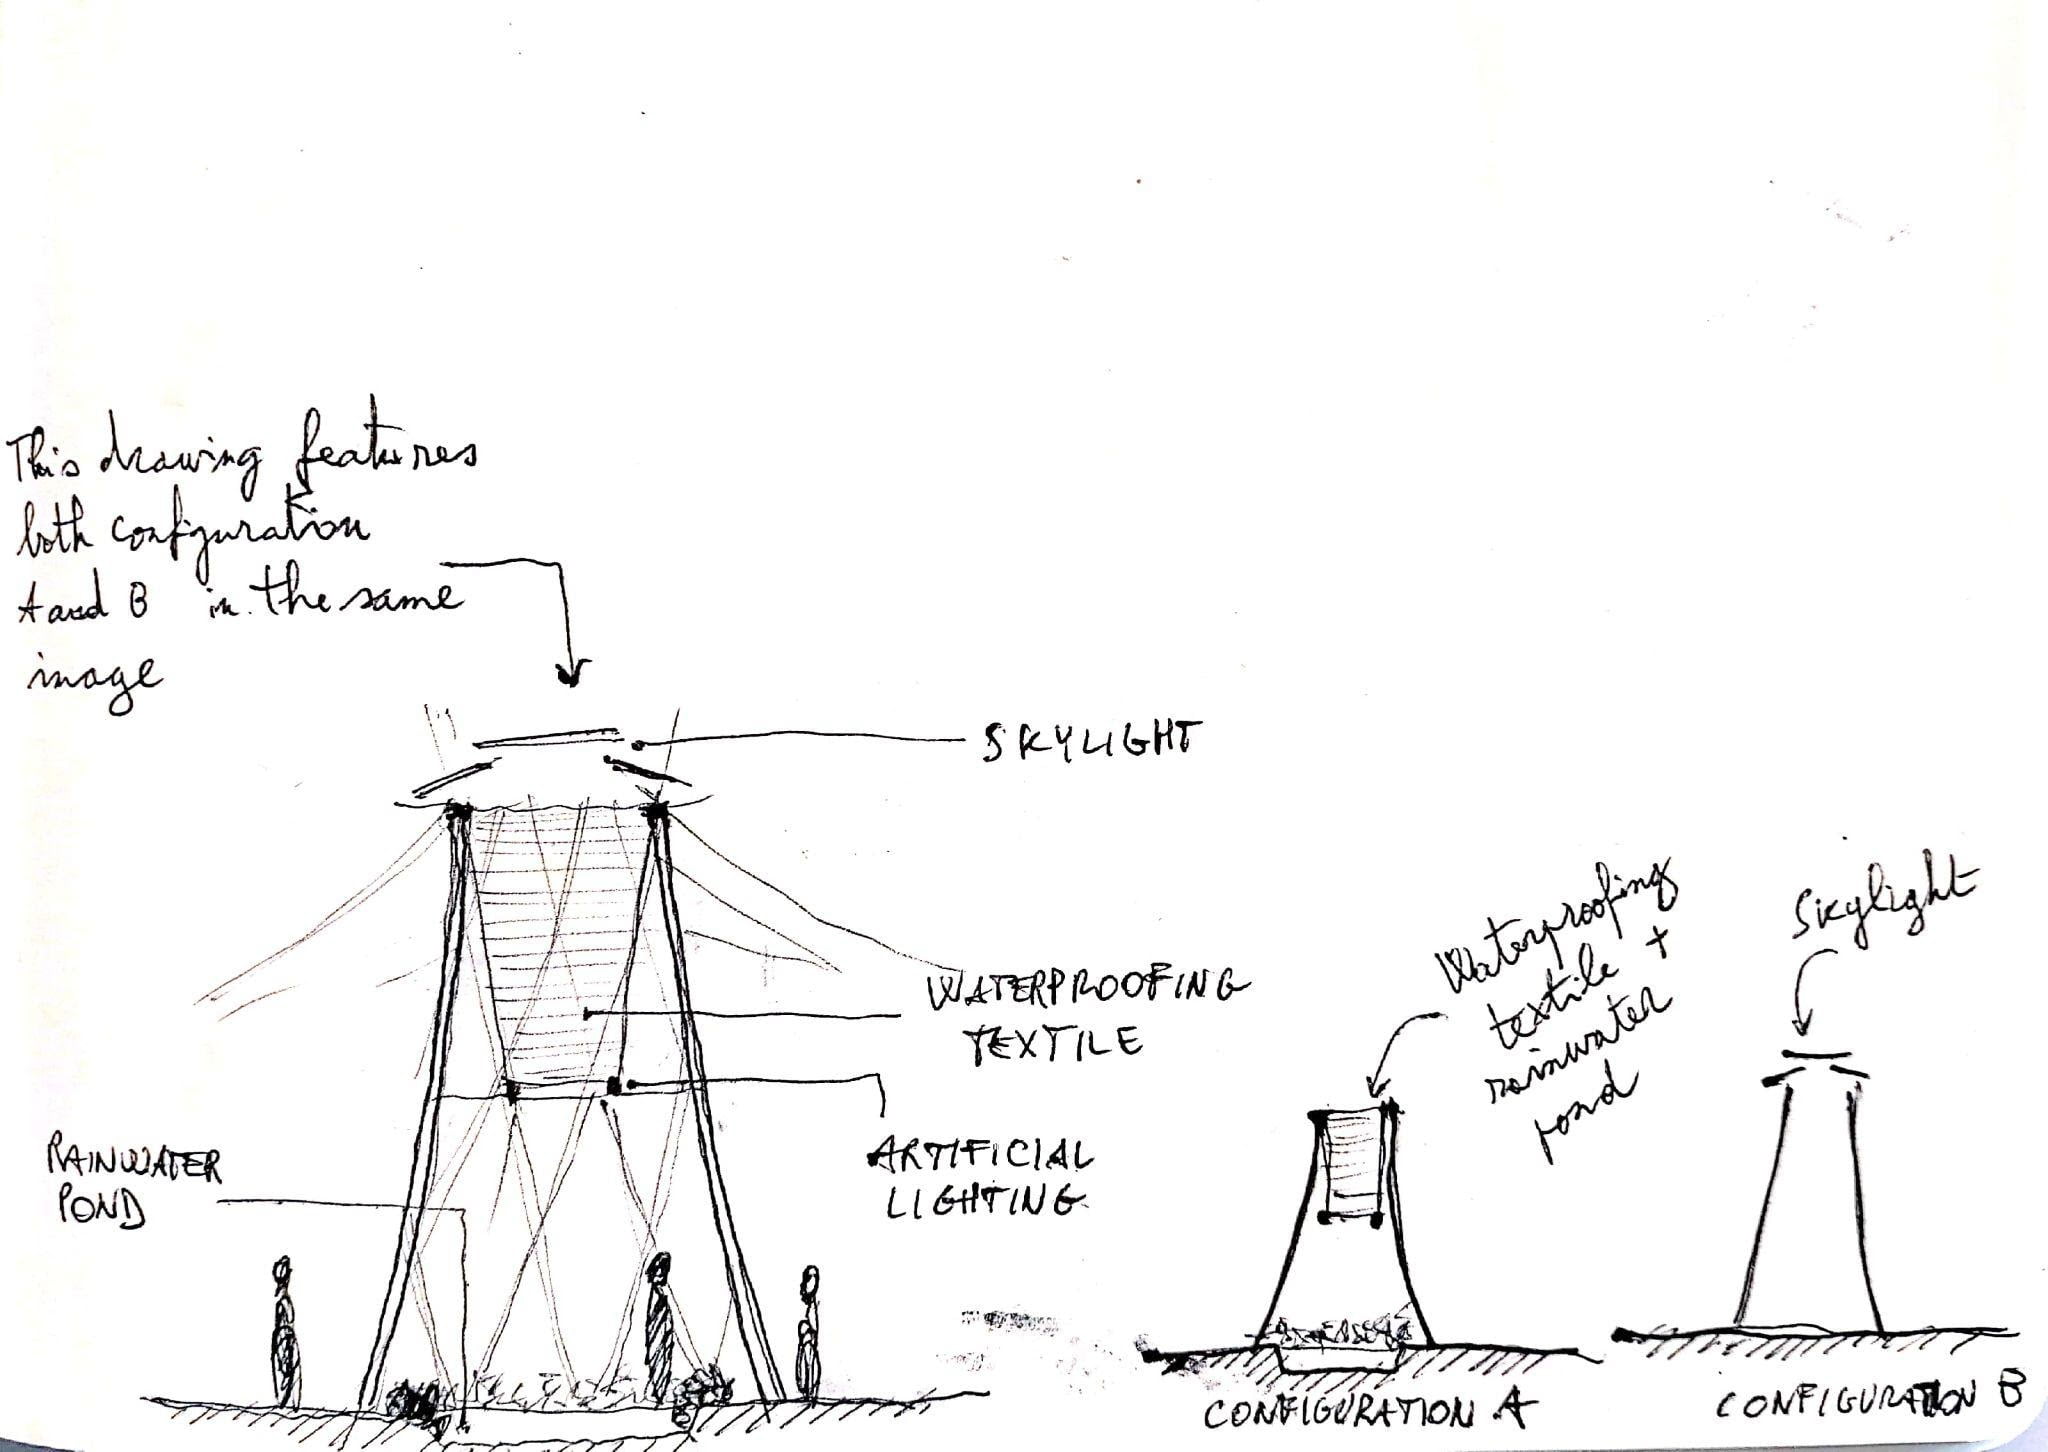 This drawing features
both configuration
A and B in the same
image
SKYLIGHT
WATERPROOFING
TEXTILE
ARTIFICIAL
LIGHTING
RAINWATER
POND
Waterproofing
textile +
rainwater
pond
CONFIGURATION A
Skylight
CONFIGURATION B